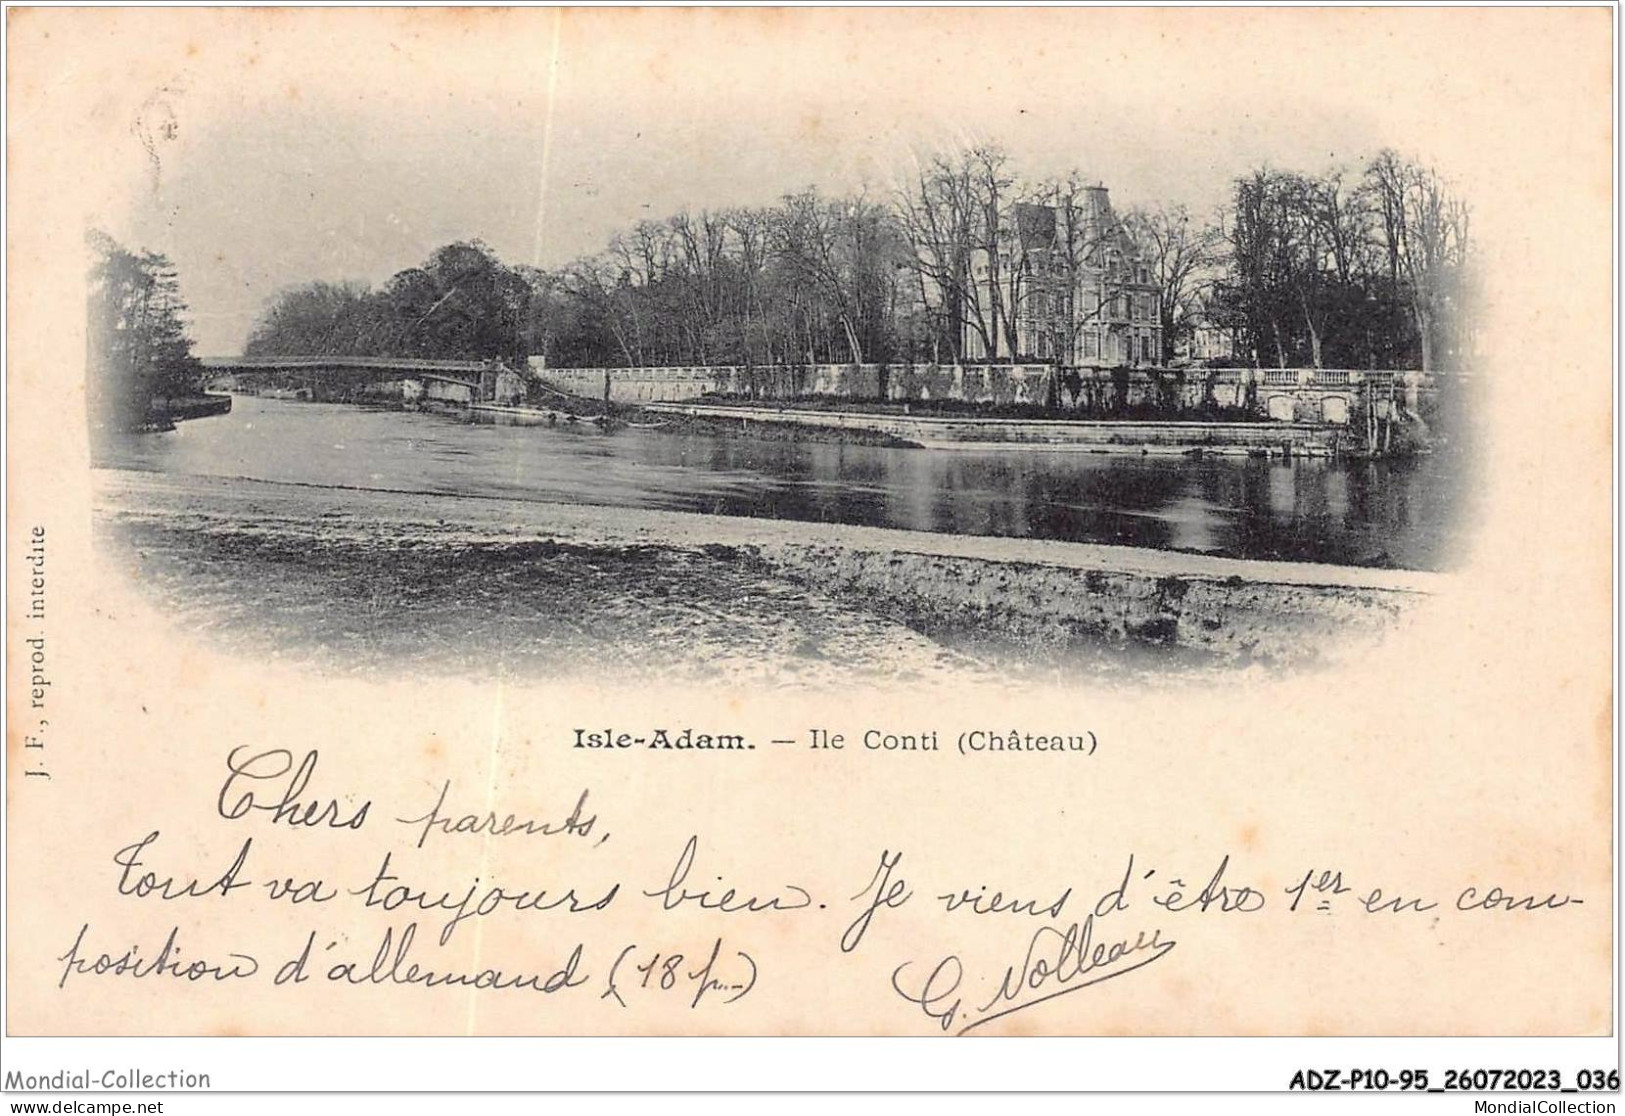 J. F., reprod. interdite
Isle-Adam. — Ile Conti (Château)
Chers parents,
Tout va toujours bien. Je viens d'être 1er en com-
position d'allemand (18 p...)
G. Nolleau
Mondial-Collection
ADZ-P10-95_26072023_036
delcampe.net
MondialCollection